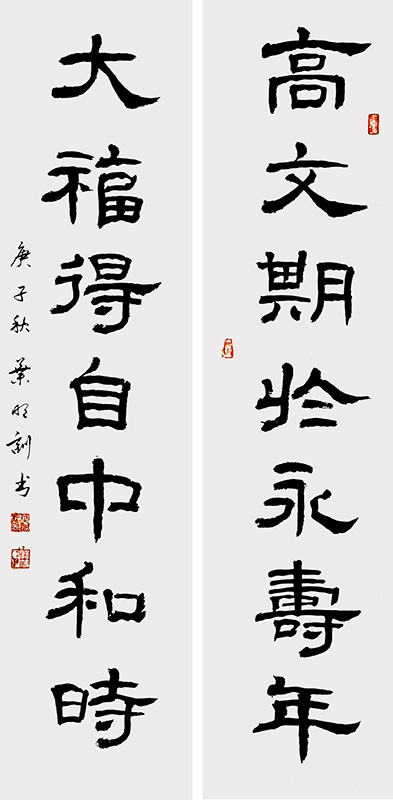 高文期於永壽年
大福得自中和時
庚子秋葉明訓书